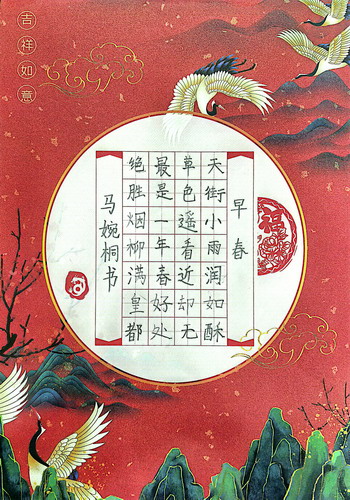 吉祥如意
早春
天街小雨润如酥
草色遥看近却无
最是一年春好处
绝胜烟柳满皇都
马婉桐书
福